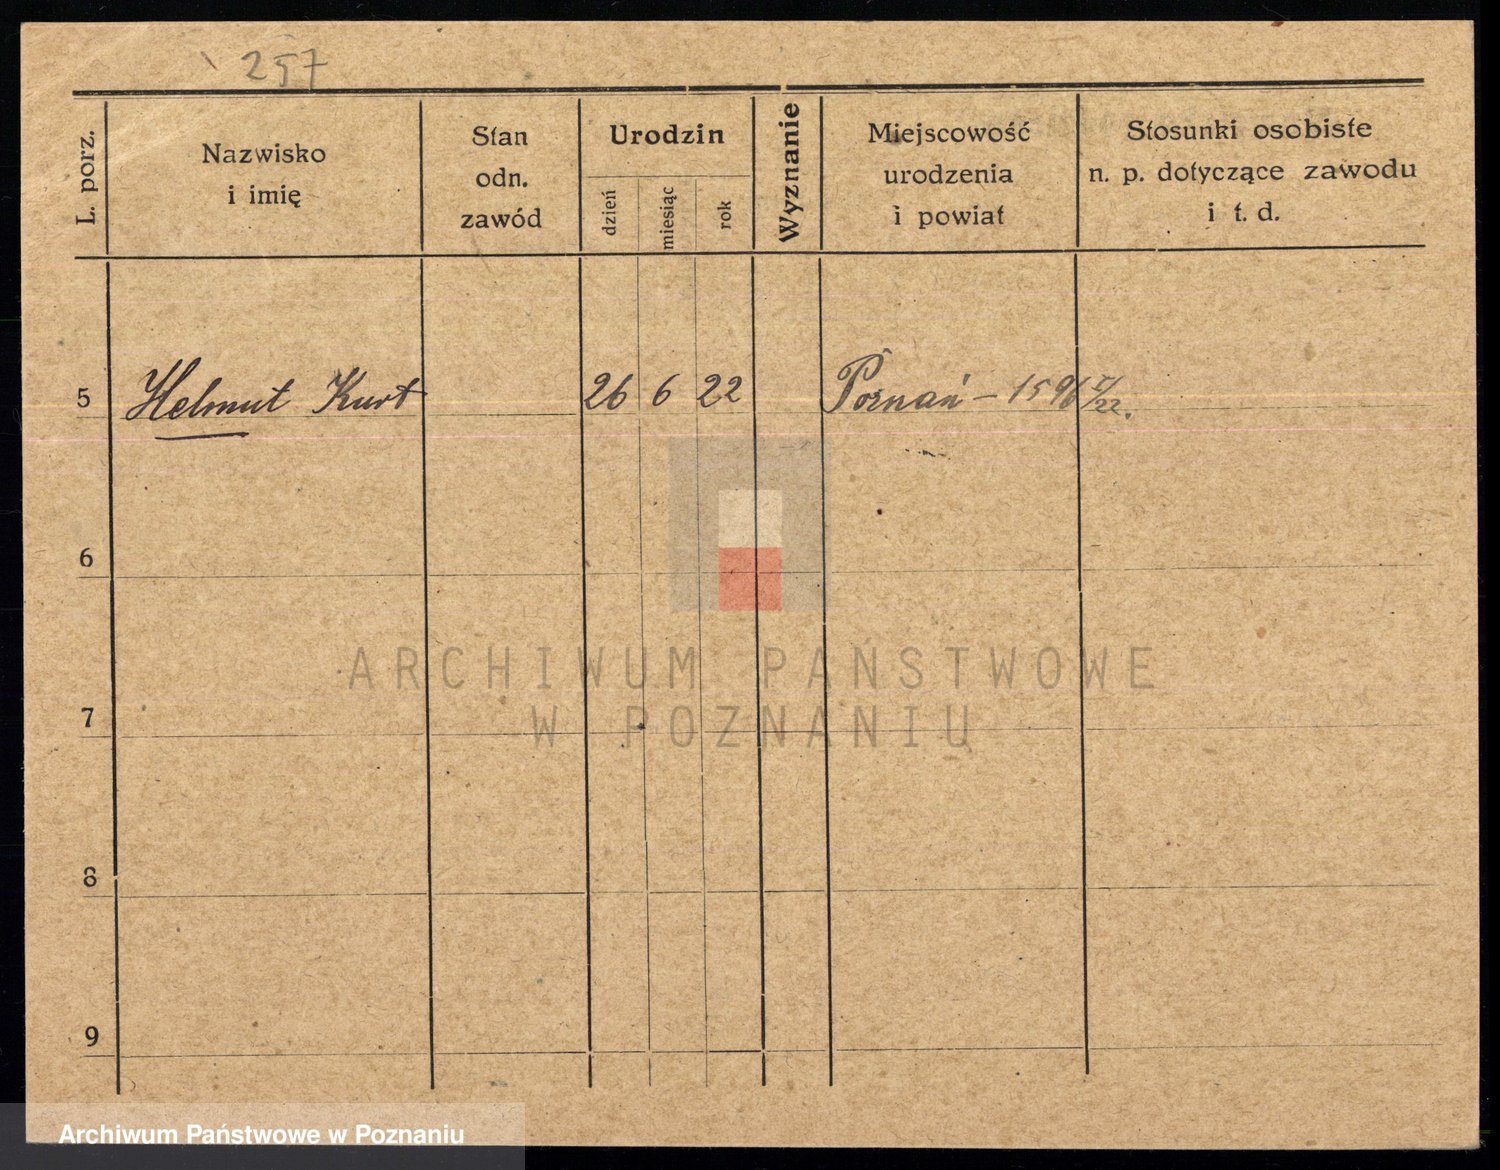 257
L. porz.
Nazwisko
i imię
Stan
odn.
zawód
Urodzin
dzień
miesiąc
rok
Wyznanie
Miejscowość
urodzenia
i powiat
Stosunki osobiste
n. p. dotyczące zawodu
i t. d.
5 Helmut Kurt 26 6 22 Poznań –
6
ARCHIWUM PAŃSTWOWE
W POZNANIU
7
8
9
Archiwum Państwowe w Poznaniu